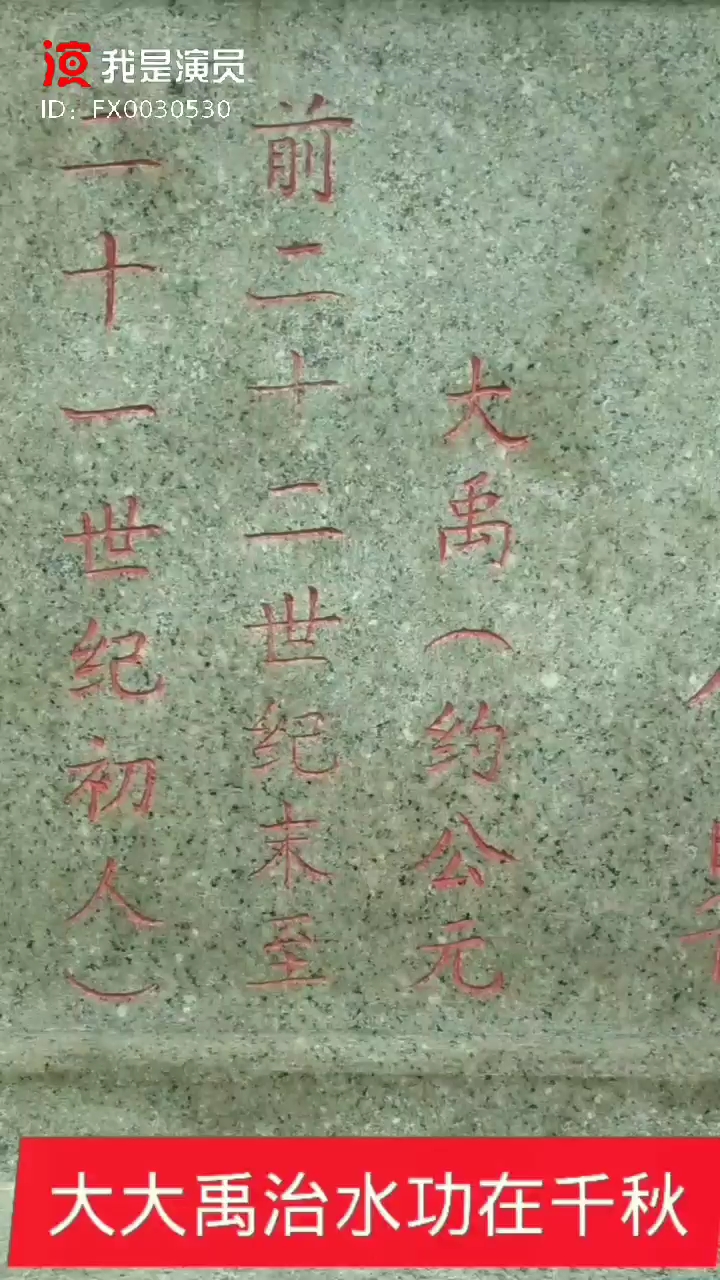 我是演员
ID：FX0030530
大禹（约公元
前二十二世纪末至
二十一世纪初人）
大大禹治水功在千秋